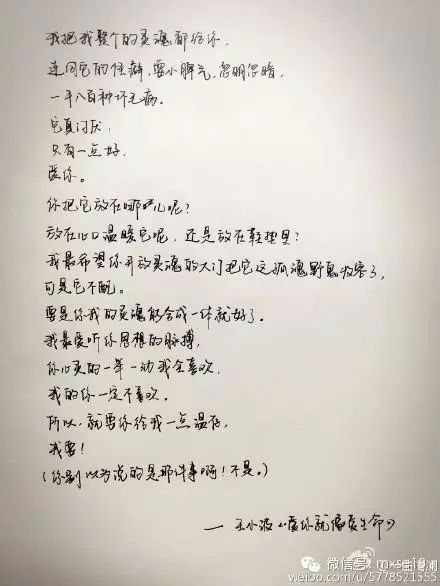 我把我整个的灵魂都给你，
连同它的怪癖，耍小脾气，忽明忽暗，
一千八百种坏毛病。
它真讨厌，
只有一点好，
爱你。
你把它放在哪儿呢？
放在心口温暖它呢，还是放在鞋垫里？
我最希望你开放灵魂的大门把它这孤魂野鬼收容了，
可是它不配。
要是你我的灵魂能合成一体就好了。
我最爱听你思想的脉搏，
你心灵的一举一动我全喜欢，
我的你一定不喜欢。
所以，就要你给我一点温存，
我要！
（你别以为说的是那件事啊！不是。）
—王小波《爱你就像爱生命》
微信号：
weibo.com/u/5778521555